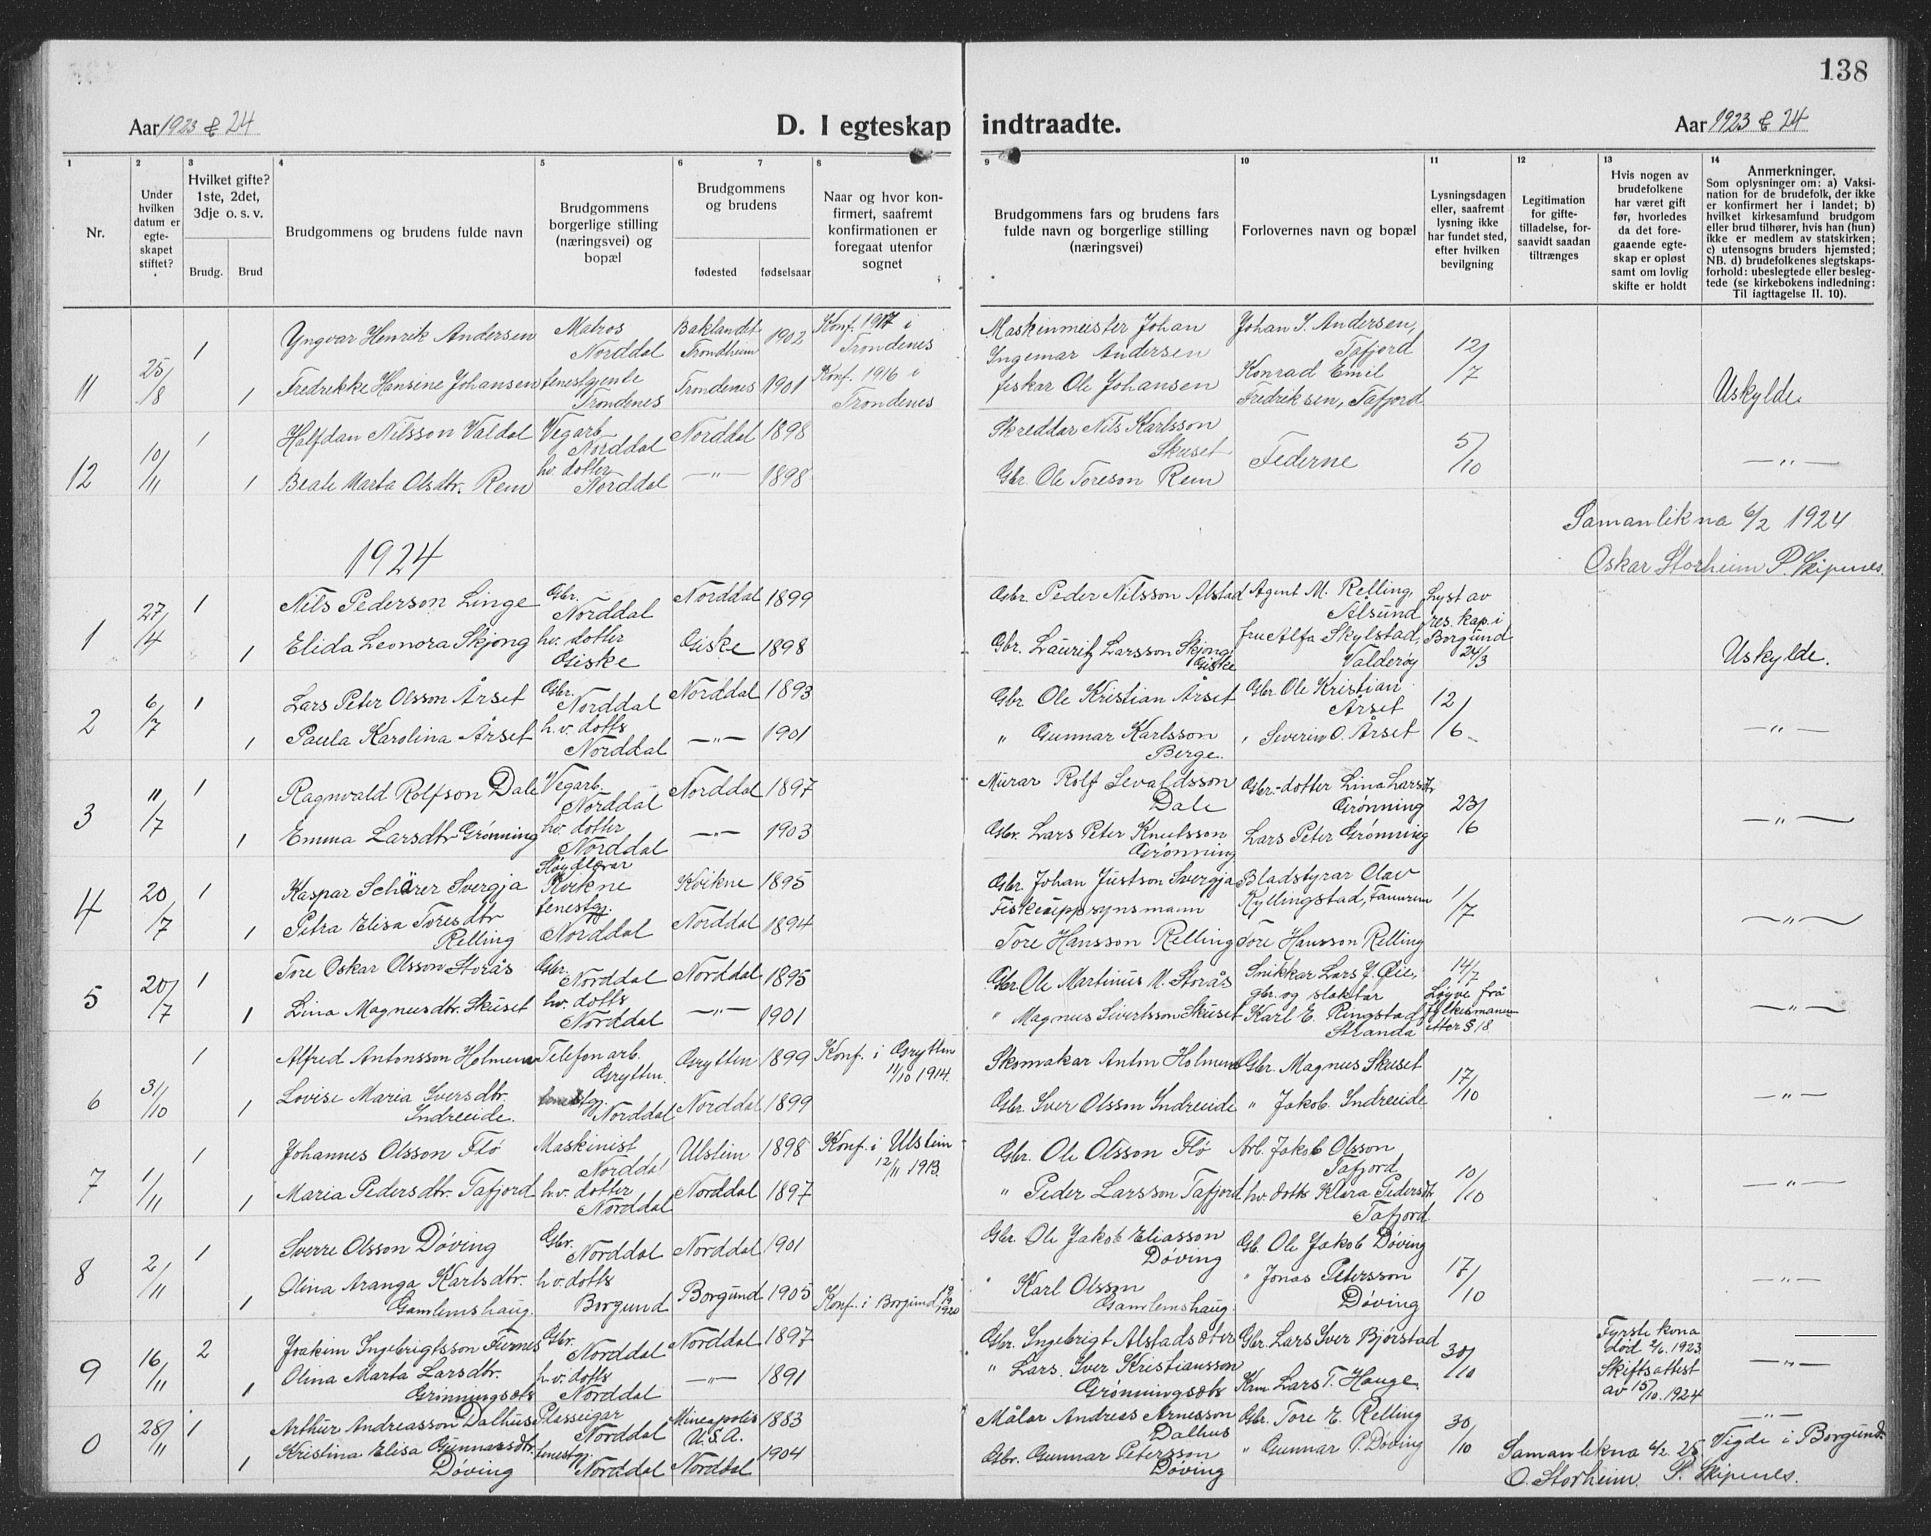 138
Aar 1923 & 24
D. I egteskap indtraadte.
Aar 1923 & 24
1
2
3
4
5
6
7
8
9
10
11
12
13
14
Nr.
Under
hvilken
datum er
egte-
skapet
stiftet?
Hvilket gifte?
1ste, 2det,
3dje o. s. v.
Brudg.
Brud
Brudgommens og brudens fulde navn
Brudgommens
borgerlige stilling
(næringsvei) og
bopæl
Brudgommens
og brudens
fødested
fødselsaar
Naar og hvor kon-
firmert, saafremt
konfirmationen er
foregaat utenfor
sognet
Brudgommens fars og brudens fars
fulde navn og borgerlige stilling
(næringsvei)
Forlovernes navn og bopæl
Lysningsdagen
eller, saafremt
lysning ikke
har fundet sted,
efter hvilken
bevilgning
Legitimation
for gifte-
tilladelse, for-
saavidt saadan
tiltrænges
Hvis nogen av
brudefolkene
har været gift
før, hvorledes
da det fore-
gaaende egte-
skap er opløst
samt om lovlig
skifte er holdt
Anmerkninger.
Som oplysninger om: a) Vaksi-
nation for de brudefolk, der ikke
er konfirmert her i landet; b)
hvilket kirkesamfund brudgom
eller brud tilhører, hvis han (hun)
ikke er medlem av statskirken;
c) utensogns bruders hjemsted;
NB. d) brudefolkenes slegtskaps-
forhold: ubeslegtede eller besleg-
tede (se kirkebokens indledning:
Til iagttagelse II. 10).
11
25/8
1
Yngvar Henrik Andersen
Matros
Norddal
Baklandt
Trondheim
1902
Konf. 1917 i
Trondenes
Maskinmeister Johan
Ingemar Andersen
Johan I. Andersen,
Tafjord
12/7
1
Fredrikke Hansine Johansen
tenestgjente
Trondenes
Trondenes
1901
Konf. 1916 i
Trondenes
fiskar Ole Johansen
Konrad Emil
Fredriksen, Tafjord
Uskylde.
12
10/11
1
Halfdan Nilsson Valdal
Vegarb.
Norddal
Norddal
1898
Skreddar Nils Karlsson
Skuset
Federne
5/10
1
Beate Marta Olsdtr. Rem
hv. dotter
Norddal
—"—
1898
Gbr. Ole Toreson Rem
—"—
Samanlikna 6/2 1924
Oskar Storheim P. Skipenes.
1924
1
27/4
1
Nils Pederson Linge
Gbr.
Norddal
Norddal
1899
Gbr. Peder Nilsson Alstad
Agent M. Relling,
Ålsund
Lyst av
res. kap. i
Borgund
24/3
1
Elida Leonora Skjong
hv. dotter
Giske
Giske
1898
Gbr. Lauritz Larsson Skjong
Giske
fru Alfa Skylstad,
Valderøy
Uskylde.
2
6/7
1
Lars Peter Olsson Årset
Gbr.
Norddal
Norddal
1893
Gbr. Ole Kristian Årset
Gbr. Ole Kristian
Årset
12/6
1
Paula Karolina Årset
h.v. dotts
Norddal
—"—
1901
" Gunnar Karlsson
Berge.
" Severin O. Årset
—"—
3
11/7
1
Ragnvald Rolfson Dale
Vegarb.
Norddal
Norddal
1897
Murar Rolf Sevaldsson
Dale
Gbr.-dotter Lina Larsdtr
Grønning
23/6
1
Emma Larsdtr Grønning
hv. dotter
Norddal
—"—
1903
Gbr. Lars Peter Knutsson
Grønning
Lars Peter Grønning
—"—
4
20/7
1
Kaspar Schärer Svergja
Sløydlærar
Kvikne
Kvikne
1895
Gbr. Johan Justson Svergja
Bladstyrar Olav
Kyllingstad,
1/7
1
Petra Elisa Toresdtr
Relling
tenestgj.
Norddal
Norddal
1894
Fiskeuppsynsmann
Tore Hansson Relling
Tore Hansson Relling
—"—
5
20/7
1
Tore Oskar Olsson Storås
Gbr.
Norddal
Norddal
1895
Gbr. Ole Martinus M. Storås
Snikkar Lars J. Øie,
gbr. og slaktar
Karl E. Ringstad
Stranda
14/7
Løyve frå
fylkesmannen
etter § 18
1
Lina Magnusdtr. Skuset
hv. dotts
Norddal
—"—
1901
" Magnus Sivertsson Skuset
—"—
6
31/10
1
Alfred Antonsson Holmene
Telefonarb.
Grytten.
Grytten
1899
Konf. i Grytten
11/10 1914.
Skomakar Anton Holmene
Gbr. Magnus Skuset
17/10
1
Lovise Maria Iversdtr.
Indreeide.
tenestgj.
Norddal
Norddal
1899
Gbr. Iver Olsson Indreeide
" Jakob Indreeide
—"—
7
1/11
1
Johannes Olsson Flø
Maskinist
Norddal
Ulstein
1898
Konf. i Ulstein
12/11 1913.
Gbr. Ole Olsson Flø
Arb. Jakob Olsson
Tafjord
10/10
1
Maria Pedersdtr. Tafjord
h.v. dotter
Norddal
Norddal
1897
" Peder Larsson Tafjord
hv. dotts Klara Pedersdtr
Tafjord
—"—
8
2/11
1
Sverre Olsson Døving
Gbr.
Norddal
Norddal
1901
Gbr. Ole Jakob Eliasson
Døving
Gb. Ole Jakob Døving
17/10
1
Olina Aranga Karlsdtr.
Gamlemshaug.
h.v. dotts
Borgund
Borgund
1905
Konf. i Borgund 19/9 1920
" Karl Olsson
Gamlemshaug.
" Jonas Petersson
Døving
—"—
9
16/11
2
Joakim Ingebrigtsson Furnes
Gbr.
Norddal
Norddal
1897
Gbr. Ingebrigt Alstadsæter
Gbr. Lars Iver Bjørstad
30/10
Fyrste kona
død 2/6. 1923
Skiftsattest
av 15/10. 1924
1
Olina Marta Larsdtr.
Grønningsæts
h.v. dotts
Norddal
—"—
1891
" Lars. Iver Kristiansson
Grønningsæts
Krm Lars T. Hauge.
—"—
0
28/11
1
Arthur Andreasson Dalhus
Plasseigar
Norddal
Mineapolis
U.S.A.
1883
Målar Andreas Arnesson
Dalhus
Gbr. Tore E. Relling
30/10
—"—
1
Kristina Elisa Gunnarsdtr.
Døving
tenestgj.
Norddal
Norddal
1904
Gbr. Gunnar Petersson
Døving
" Gunnar P. Døving
Vigde i Borgund.
Samanlikna 4/2. 25
O. Storheim. P. Skipenes.